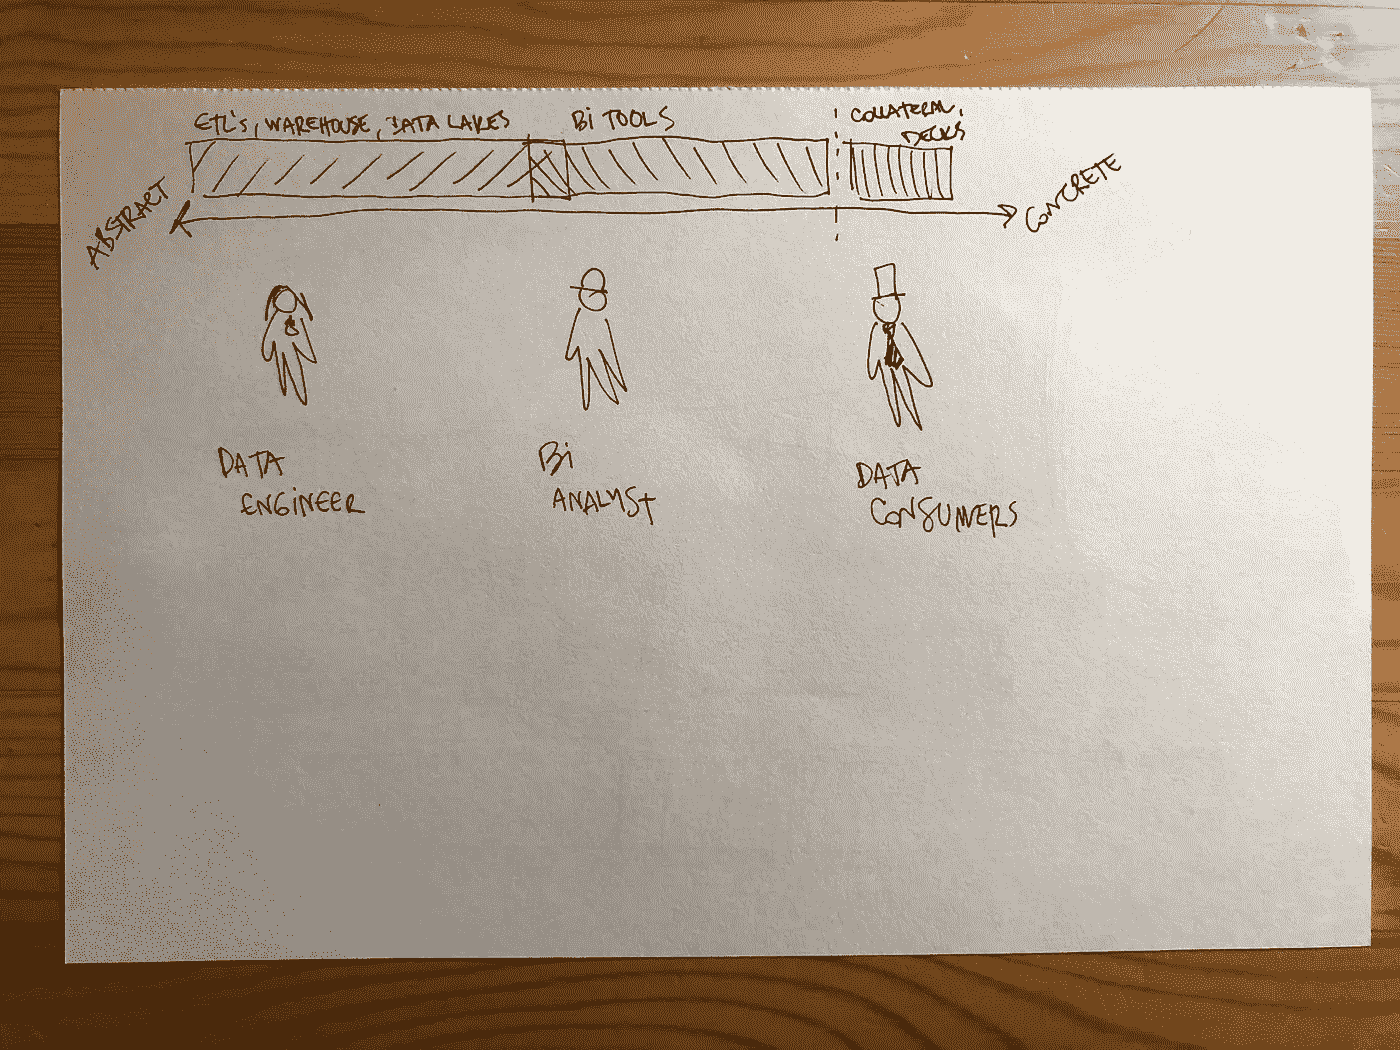 ETL's, WAREHOUSE, DATA LAKES
Bi TOOLS
COLLATERAL,
DECKS
ABSTRACT
CONCRETE
DATA
ENGINEER
Bi
ANALYST
DATA
CONSUMERS